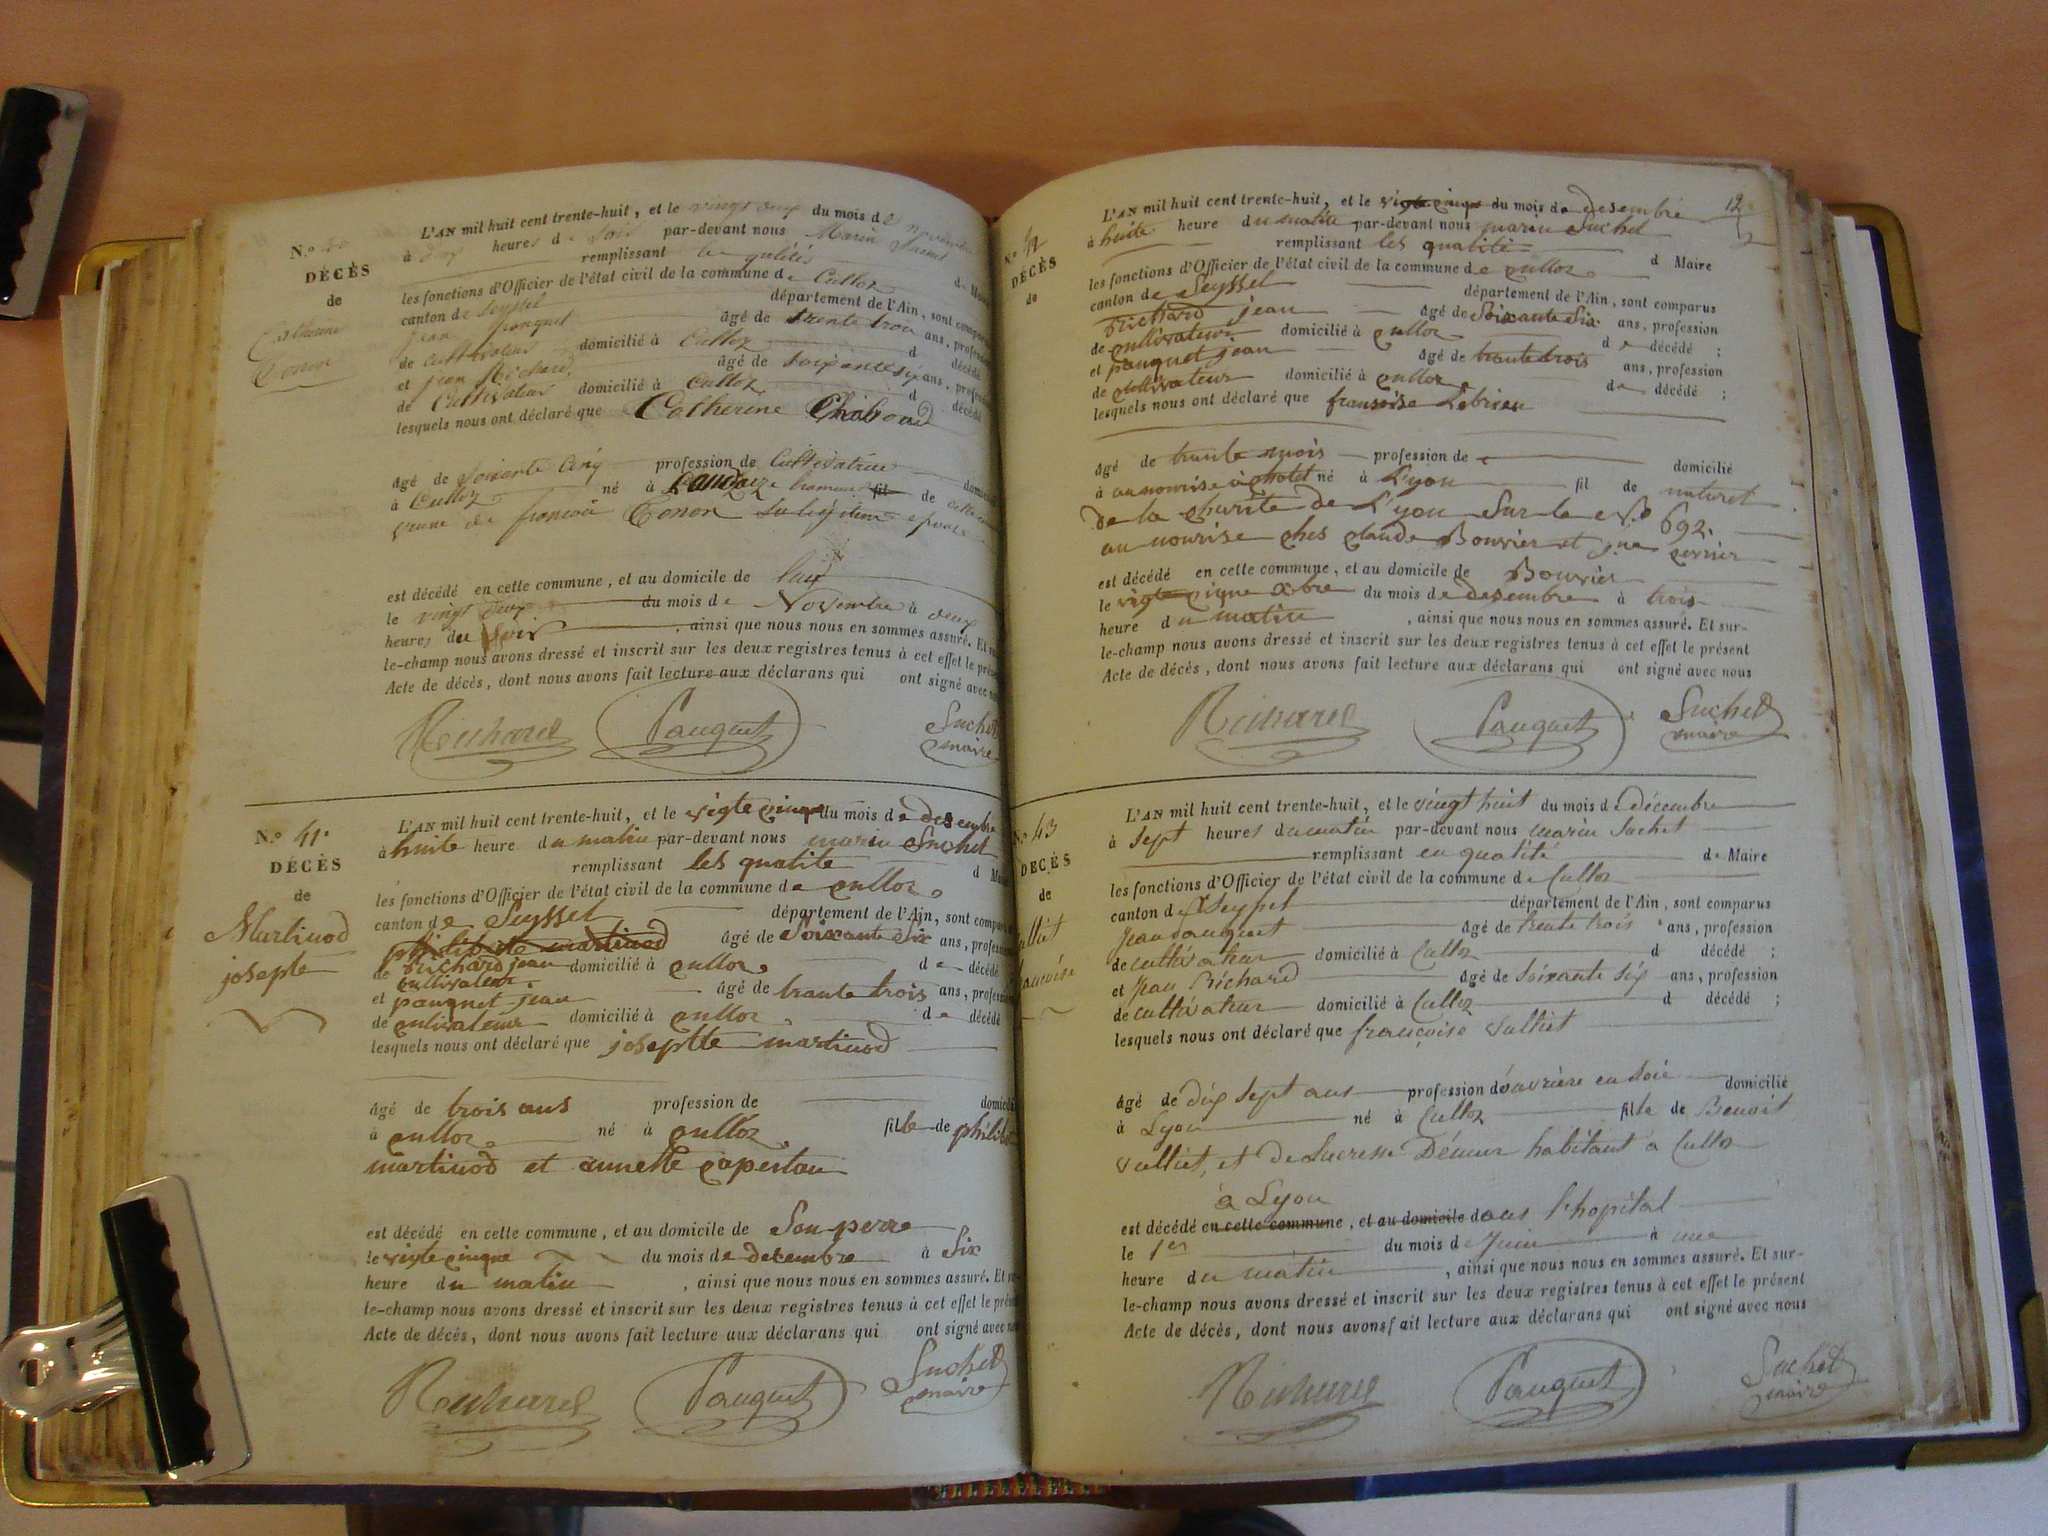 N.o 40
DÉCÈS
de
Catherine
Conon
L'AN mil huit cent trente-huit, et le vingt deux du mois de novembre
à heures de Soir par-devant nous Marin Suchet
remplissant les qulités de
les fonctions d'Officier de l'état civil de la commune de Culloz
canton de Seyssel département de l'Ain, sont
jean pauquet âgé de trente trois ans, profession
de cultivateur domicilié à Culloz d décédé
et jean Richard âgé de soixante six ans,
de Cultivateur domicilié à Culloz d décédé
lesquels nous ont déclaré que Catherine Chaboud
âgé de soixante Cinq profession de Cultivatrice
à Culloz né à hameau fil de
de francois Conon Sa légitime epouse
est décédé en cette commune, et au domicile de
le vingt deux du mois de Novembre à deux
heures du Soir , ainsi que nous nous en sommes assuré. Et
le-champ nous avons dressé et inscrit sur les deux registres tenus à cet effet le
Acte de décès, dont nous avons fait lecture aux déclarans qui ont signé avec
Richard Pauquet Suchet
maire
N.o 41.
DÉCÈS
de
Martinod
josepte
L'AN mil huit cent trente-huit, et le vigte cinque du mois de desembre
à huite heure du matin par-devant nous marin Suchet
remplissant les qualite d
les fonctions d'Officier de l'état civil de la commune de culloz
canton de Seyssel département de l'Ain, sont
philiberte martinod âgé de Soixante Six ans,
de Richard jean domicilié à culloz de décédé
cullivateur
et pauquet jean âgé de trante trois ans,
de cultivateur domicilié à culloz de décédé
lesquels nous ont déclaré que joseptte martinod
âgé de trois ans profession de
à culloz né à culloz fille de
martinod et annette capertau
est décédé en cette commune, et au domicile de Son perre
le vigte cinque du mois de desembre à Six
heure du matin , ainsi que nous nous en sommes assuré. Et
le-champ nous avons dressé et inscrit sur les deux registres tenus à cet effet le
Acte de décès, dont nous avons fait lecture aux déclarans qui ont signé avec
Richard Pauquet Suchet
maire
12
N.o 42
DÉCÈS
de
L'AN mil huit cent trente-huit, et le vigte cinque du mois de desembre
à huite heure du matin par-devant nous marin Suchet
remplissant les qualite d Maire
les fonctions d'Officier de l'état civil de la commune de culloz
canton de Seyssel département de l'Ain, sont comparus
Richard jean âgé de Soixante Six ans, profession
de cullivateur domicilié à culloz de décédé ;
et pauquet jean âgé de trante trois ans, profession
de cultivateur domicilié à culloz de décédé ;
lesquels nous ont déclaré que fransoise Lebrieu
âgé de trante mois profession de domicilié
à au nourise né à Lyon fil de naturel
De la charite de Lyon Sur le No 692.
au nourise ches claude Bouvier et
est décédé en cette commune, et au domicile de Bouvier
le vigte cinque xbre du mois de desembre à trois
heure du matin , ainsi que nous nous en sommes assuré. Et sur-
le-champ nous avons dressé et inscrit sur les deux registres tenus à cet effet le présent
Acte de décès, dont nous avons fait lecture aux déclarans qui ont signé avec nous
Richard Pauquet Suchet
maire
N.o 43
DÉCÈS
de
L'AN mil huit cent trente-huit, et le vingt huit du mois de décembre
à sept heures du matin par-devant nous marin Suchet
remplissant en qualité de Maire
les fonctions d'Officier de l'état civil de la commune de Culloz
canton de Seyssel département de l'Ain, sont comparus
Jean pauquet âgé de trente trois ans, profession
de cultivateur domicilié à Culloz d décédé ;
et Jean Richard âgé de soixante six ans, profession
de cultivateur domicilié à Culloz d décédé ;
lesquels nous ont déclaré que françoise Vulliet
âgé de dix sept ans profession d'ouvrière en soie domicilié
à Lyon né à Culloz fille de Benoit
Vulliet, et de Lucresse Démeur habitant a Culloz
à Lyon
est décédé en cette commune, et au domicile dans l'hopital
le 1er du mois de Juin à une
heure du matin , ainsi que nous nous en sommes assuré. Et sur-
le-champ nous avons dressé et inscrit sur les deux registres tenus à cet effet le présent
Acte de décès, dont nous avons fait lecture aux déclarans qui ont signé avec nous
Richard Pauquet Suchet
maire